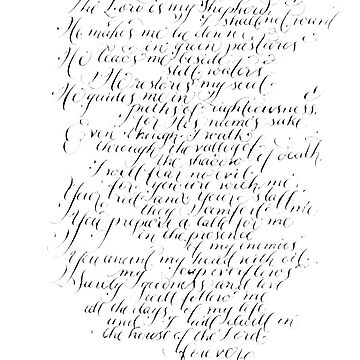 The Lord is my Shepherd,
I shall not want
He makes me lie down
in green pastures
He leads me beside
still waters
He restores my soul.
He guides me in
paths of righteousness
for His name's sake
Even though I walk
through the valley of
the shadow of death,
I will fear no evil,
for you are with me;
Your rod and your staff
they comfort me
You prepare a table for me
in the presence
of my enemies
You anoint my head with oil
my cup overflows
Surely goodness and love
will follow me
all the days of my life
and I will dwell in
the house of the Lord
forever